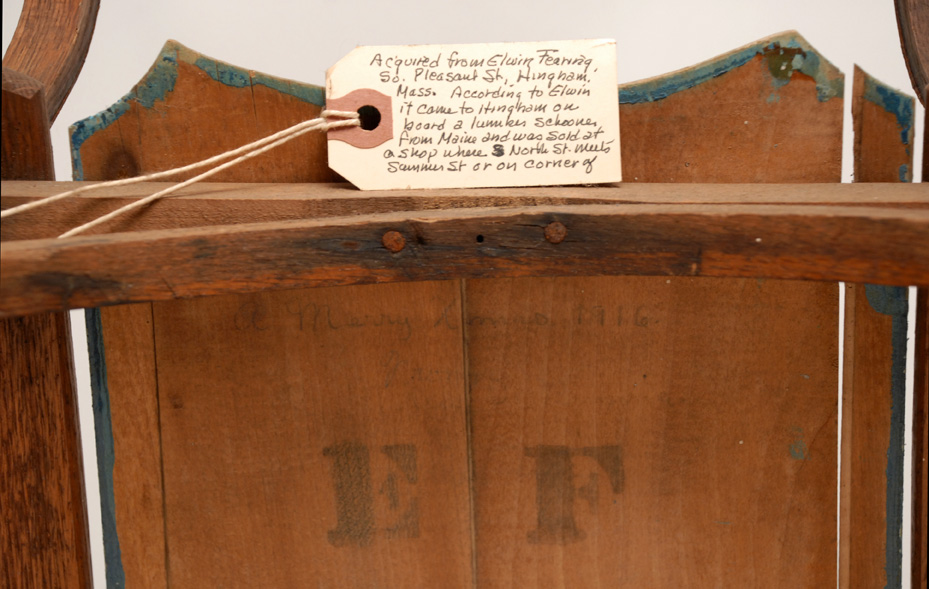 Acquired from Elwin Fearing,
So. Pleasant St., Hingham,
Mass. According to Elwin
it came to Hingham on
board a lumber schooner
from Maine and was sold at
a shop where North St. meets
Summer St or on corner of
Merry 1916
E F